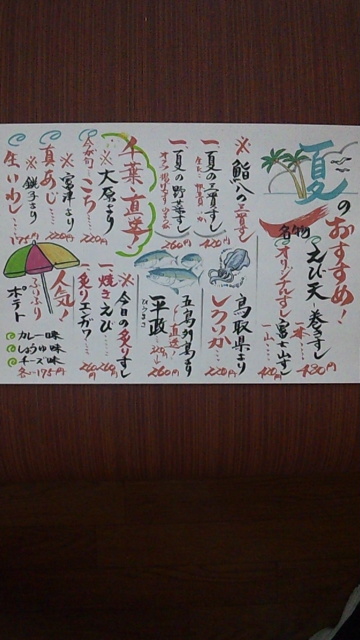 夏のおすすめ!
名物
えび天巻きずし
一本…480円
オリジナルずし
富士山ずし
一山…420円
※鮨八の三貫ずし
一夏の三貫ずし
420円
一夏の野菜ずし
260円
鳥取県より
しろいか…220円
五島列島より
直送!
平政
ひらまさ
260円
千葉直送!
※大原より
今が旬
こち…220円
※富津より
真あじ…220円
※銚子より
生いわし…175円
※今日の炙りずし
一焼きえび…260円
一炙りエンガワ…260円
人気!
ふりふり
ポテト
カレー味
しょうゆ味
チーズ味
各…175円